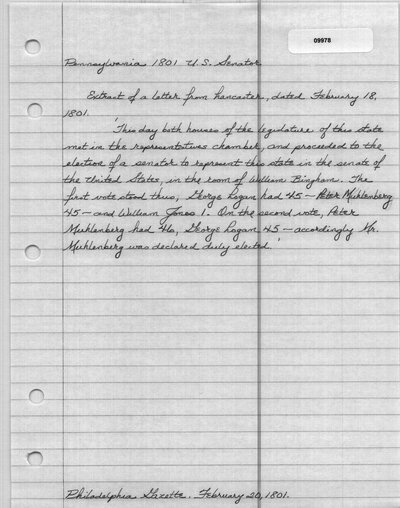 09978
Pennsylvania 1801 U.S. Senator
Extract of a letter from Lancaster, dated February 18,
1801.
'This day both houses of the legislature of this state
met in the representatives chamber, and proceeded to the
election of a senator to represent this state in the senate of
the United States, in the room of William Bingham. The
first vote stood thus, George Logan had 45 — Peter Muhlenberg
45 — and William Jones 1. On the second vote, Peter
Muhlenberg had 46, George Logan 45 — accordingly Mr.
Muhlenberg was declared duly elected.'
Philadelphia Gazette. February 20, 1801.